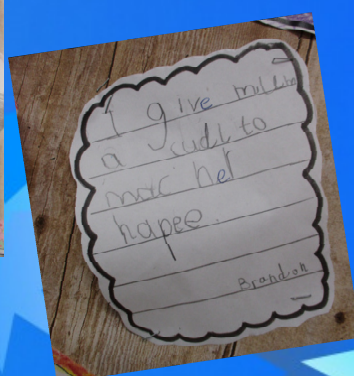 I give
a cudl to
mac her
hapee.
Brandon